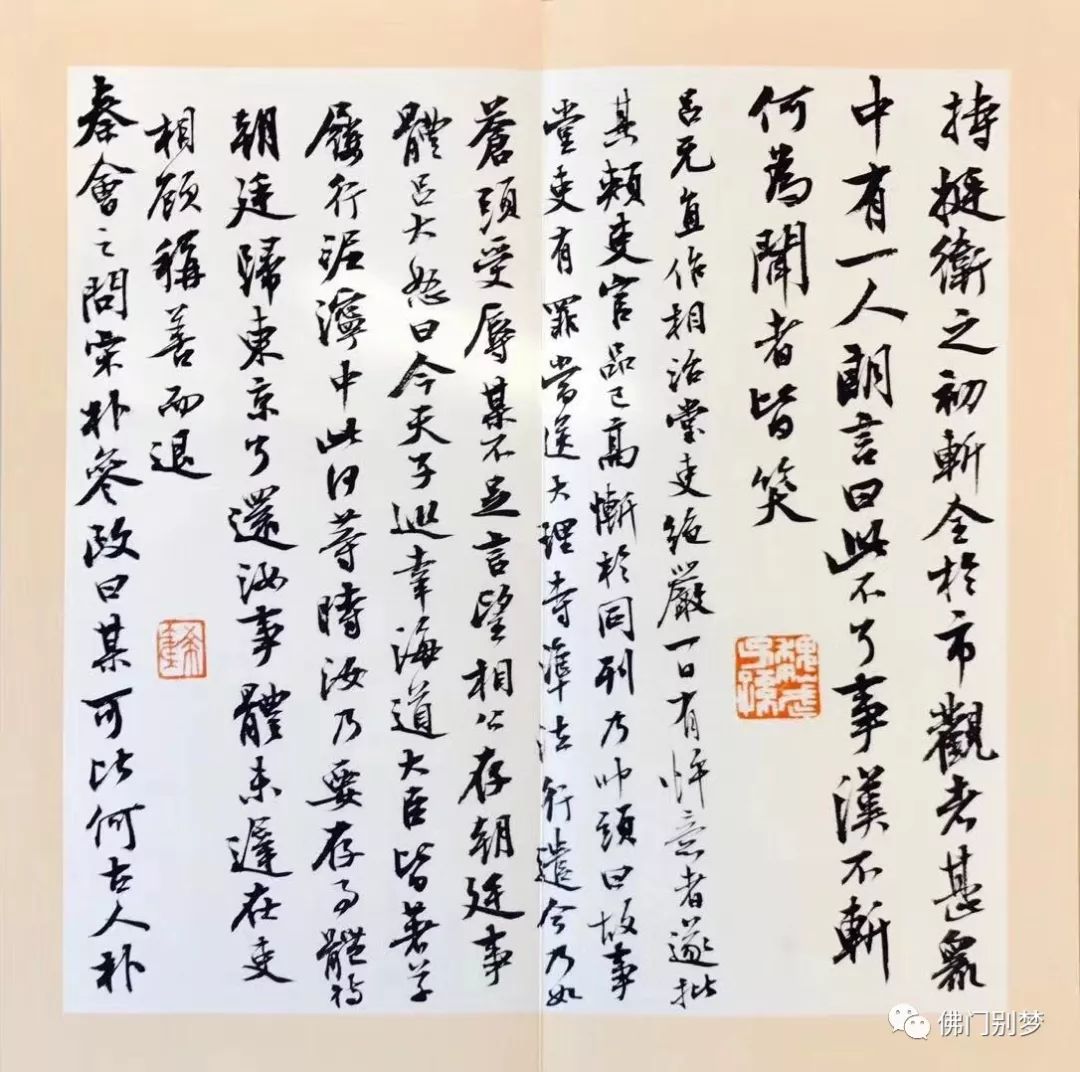 持梃衛之初斬全於市觀者甚衆
中有一人朗言曰此不了事漢不斬
何為聞者皆笑
呂元直作相治堂吏絶嚴一日有忤意者遂批
其頰吏官品已高慚於同列乃叩頭曰故事
堂吏有罪當送大理寺準法行遣今乃如
蒼頭受辱某不足言望相公存朝廷事
體呂大怒曰今天子巡幸海道大臣皆著草
屨行泥濘中此何等時汝乃要存事體待
朝廷歸東京了還汝事體未遲在吏
相顧稱善而退
秦會之問宋朴參政曰某可比何古人朴
佛门别梦